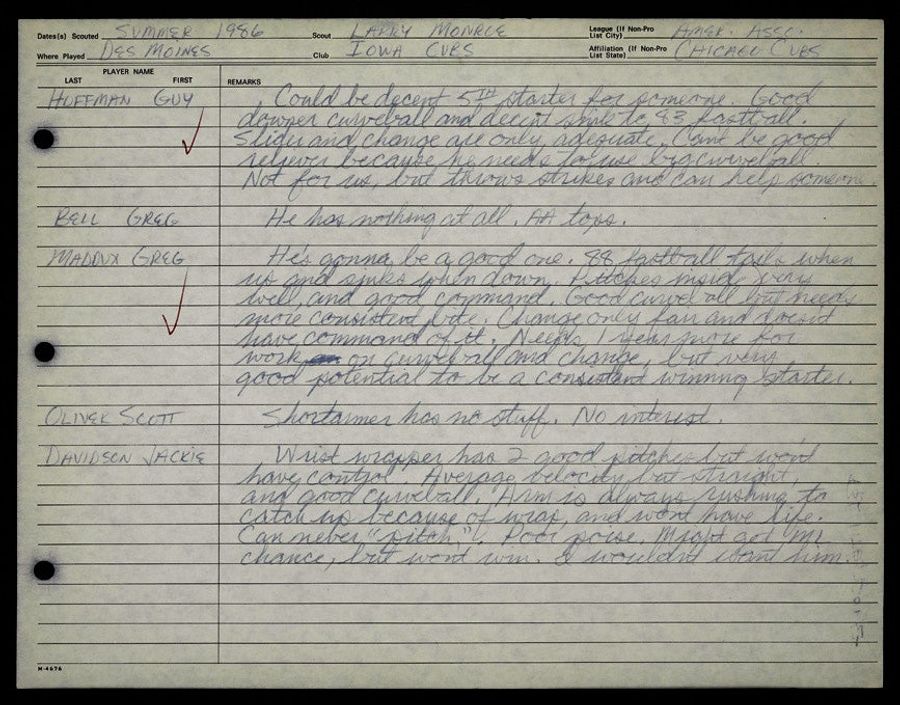 Dates(s) Scouted SUMMER 1986 Scout LARRY MONROE League (If Non-Pro List City) AMER. ASSC.
Where Played DES MOINES Club IOWA CUBS Affiliation (If Non-Pro List State) CHICAGO CUBS
PLAYER NAME
LAST FIRST REMARKS
HOFFMAN GUY Could be decent 5TH starter for someone. Good
downer curveball and decent sink to 83 fastball.
Slider and change are only adequate. Cant be good
reliever because he needs to use big curveball.
Not for us, but throws strikes and can help someone.
BELL GREG He has nothing at all. AA tops.
MADDUX GREG He's gonna be a good one. 88 fastball tails when
up and sinks when down. Pitches inside very
well, and good command. Good curveball but needs
more consistent bite. Change only fair and doesnt
have command of it. Needs 1 year more for
work on curveball and change, but very
good potential to be a consistant winning starter.
OLIVER SCOTT Shortarmer has no stuff. No interest.
DAVIDSON JACKIE Wrist wrapper has 2 good pitches but wont
have control. Average velocity but straight,
and good curveball. Arm is always rushing to
catch up because of wrap, and wont have life.
Can never "pitch". Poor poise. Might get ML
chance, but wont win. I wouldnt want him.
M-4676